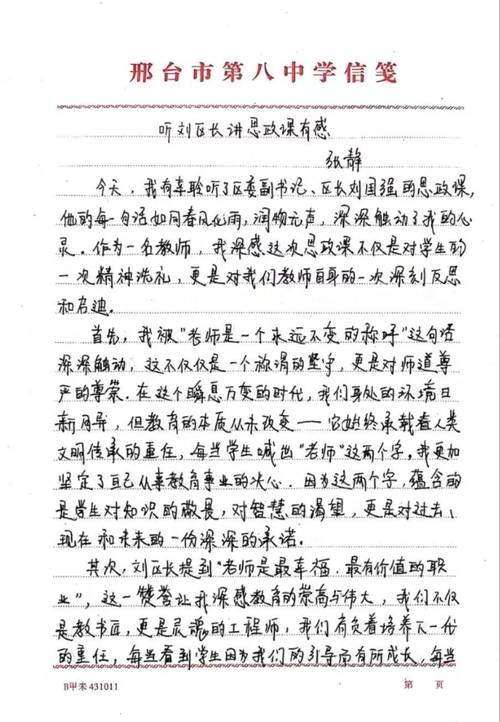 邢台市第八中学信笺
听刘区长讲思政课有感
张静
今天，我有幸聆听了区委副书记、区长刘国强的思政课，
他的每一句话如同春风化雨，润物无声，深深触动了我的心
灵。作为一名教师，我深感这次思政课不仅是对学生的
一次精神洗礼，更是对我们教师自身的一次深刻反思
和启迪.
首先，我被“老师是一个永远不变的称呼”这句话
深深触动，这不仅仅是一个称谓的坚守，更是对师道尊
严的尊崇.在这个瞬息万变的时代，我们身处的环境日
新月异，但教育的本质从未改变——它始终承载着人类
文明传承的重任，每当学生喊出“老师”这两个字，我更加
坚定了自己从事教育事业的决心.因为这两个字，蕴含的
是学生对知识的敬畏，对智慧的渴望，更是对过去、
现在和未来的一份深深的承诺.
其次，刘区长提到“老师是最幸福、最有价值的职
业”，这一赞誉让我深感教育的崇高与伟大，我们不仅
是教书匠，更是灵魂的工程师，我们肩负着培养下一代
的重任，每当看到学生因为我们的引导而有所成长，每当
B甲来431011
第 页